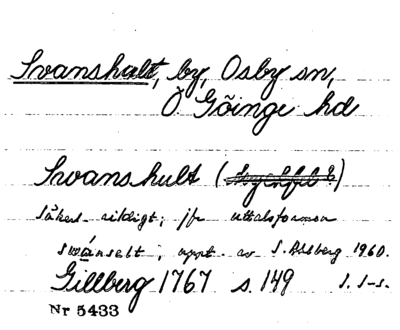 Svanshult, by, Osby sn,
Ö Göinge hd
Svanshult (
säkert riktigt; jfr uttalsformen
swánselt, uppt. av S. Ahlberg 1960.
Gillberg 1767 s. 149 S. I-s.
Nr 5433